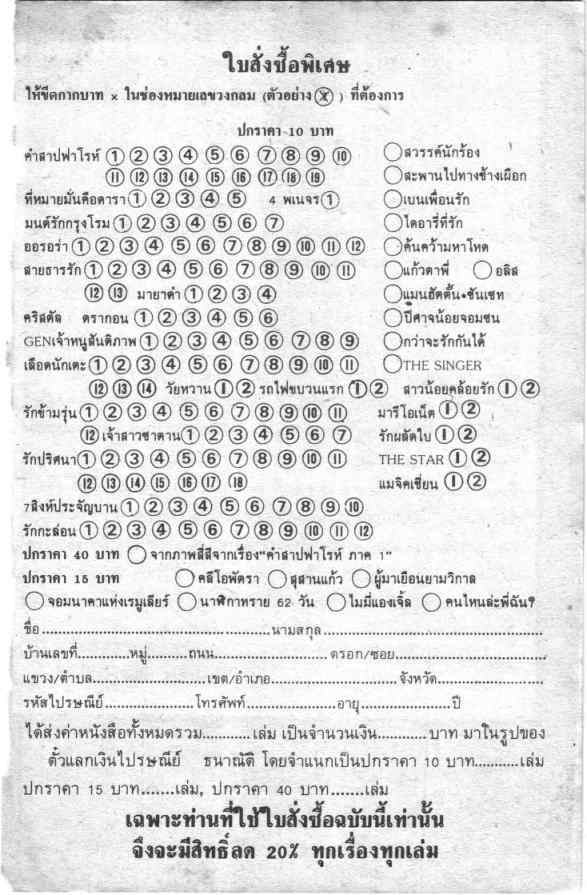 ใบสั่งซื้อพิเศษ
ให้ขีดกากบาท × ในช่องหมายเลขวงกลม (ตัวอย่าง ⓧ ) ที่ต้องการ
ปกราคา 10 บาท
คำสาปฟาโรห์ ① ② ③ ④ ⑤ ⑥ ⑦ ⑧ ⑨ ⑩ ◯ สวรรค์นักร้อง
⑪ ⑫ ⑬ ⑭ ⑮ ⑯ ⑰ ⑱ ⑲ ◯ สะพานไปทางช้างเผือก
ที่หมายมั่นคือดารา ① ② ③ ④ ⑤ 4 พเนจร ① ◯ เบนเพื่อนรัก
มนต์รักกรุงโรม ① ② ③ ④ ⑤ ⑥ ⑦ ◯ ไดอารี่ที่รัก
ออรอร่า ① ② ③ ④ ⑤ ⑥ ⑦ ⑧ ⑨ ⑩ ⑪ ⑫ ◯ ค้นคว้ามหาโหด
สายธารรัก ① ② ③ ④ ⑤ ⑥ ⑦ ⑧ ⑨ ⑩ ⑪ ◯ แก้วตาพี่ ◯ อลิส
⑫ ⑬ มายาดำ ① ② ③ ④ ◯ แมนฮัตตั้น•ซันเซท
คริสตัล ดรากอน ① ② ③ ④ ⑤ ⑥ ◯ ปีศาจน้อยจอมซน
GENเจ้าหนูสันติภาพ ① ② ③ ④ ⑤ ⑥ ⑦ ⑧ ⑨ ◯ กว่าจะรักกันได้
เลือดนักเตะ ① ② ③ ④ ⑤ ⑥ ⑦ ⑧ ⑨ ⑩ ⑪ ◯ THE SINGER
⑫ ⑬ ⑭ วัยหวาน ① ② รถไฟขบวนแรก ① ② สาวน้อยคล้อยรัก ① ②
รักข้ามรุ่น ① ② ③ ④ ⑤ ⑥ ⑦ ⑧ ⑨ ⑩ ⑪ มารีโอเน็ต ① ②
⑫ เจ้าสาวซาตาน ① ② ③ ④ ⑤ ⑥ ⑦ รักผลัดใบ ① ②
รักปริศนา ① ② ③ ④ ⑤ ⑥ ⑦ ⑧ ⑨ ⑩ ⑪ THE STAR ① ②
⑫ ⑬ ⑭ ⑮ ⑯ ⑰ ⑱ แมจิคเชี่ยน ① ②
7สิงห์ประจัญบาน ① ② ③ ④ ⑤ ⑥ ⑦ ⑧ ⑨ ⑩
รักกะล่อน ① ② ③ ④ ⑤ ⑥ ⑦ ⑧ ⑨ ⑩ ⑪ ⑫
ปกราคา 40 บาท ◯ จากภาพสี่สีจากเรื่อง"คำสาปฟาโรห์ ภาค 1"
ปกราคา 15 บาท ◯ คลีโอพัตรา ◯ สุสานแก้ว ◯ ผู้มาเยือนยามวิกาล
◯ จอมนาคาแห่งเรมูเลียร์ ◯ นาฬิกาทราย 62 วัน ◯ ไมมี่แองเจิ้ล ◯ คนไหนล่ะพี่ฉัน?
ชื่อ....................นามสกุล....................
บ้านเลขที่..........หมู่..........ถนน....................ตรอก/ซอย....................
แขวง/ตำบล....................เขต/อำเภอ....................จังหวัด....................
รหัสไปรษณีย์....................โทรศัพท์....................อายุ....................ปี
ได้ส่งค่าหนังสือทั้งหมดรวม..........เล่ม เป็นจำนวนเงิน..........บาท มาในรูปของ
ตั๋วแลกเงินไปรษณีย์ ธนาณัติ โดยจำแนกเป็นปกราคา 10 บาท..........เล่ม
ปกราคา 15 บาท.......เล่ม, ปกราคา 40 บาท.......เล่ม
เฉพาะท่านที่ใช้ใบสั่งซื้อฉบับนี้เท่านั้น
จึงจะมีสิทธิ์ลด 20% ทุกเรื่องทุกเล่ม